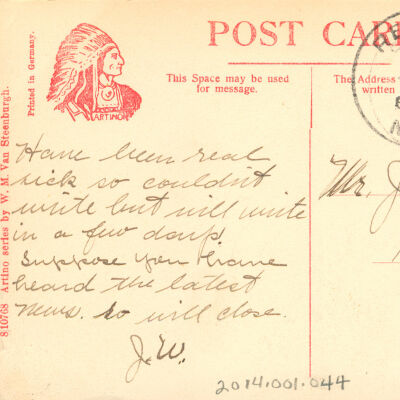 POST CAR
This Space may be used
for message.
The Address
written
Printed in Germany.
810768 Artino series by W. M. Van Steenburgh.
ARTINO
Have been real
sick so couldn't
write but will write
in a few days.
Suppose you have
heard the latest
news. so will close.
J.W.
Mr. J
2014.001.044